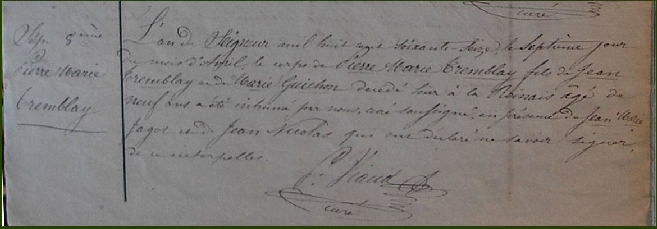 curé
Sép. 8ième
Pierre Marie
Tremblay
L'an du Seigneur mil huit cent soixante seize, le septième jour
du mois d'Avril, le corps de Pierre Marie Tremblay fils de Jean
Tremblay et de Marie Guichon décédé hier à la agé de
neuf ans a été inhumé par nous, curé soussigné, en présence de Jean Marie
Jagot et de Jean Nicolas qui ont déclaré ne savoir signer,
de ce interpellés.
P. Viaud
curé